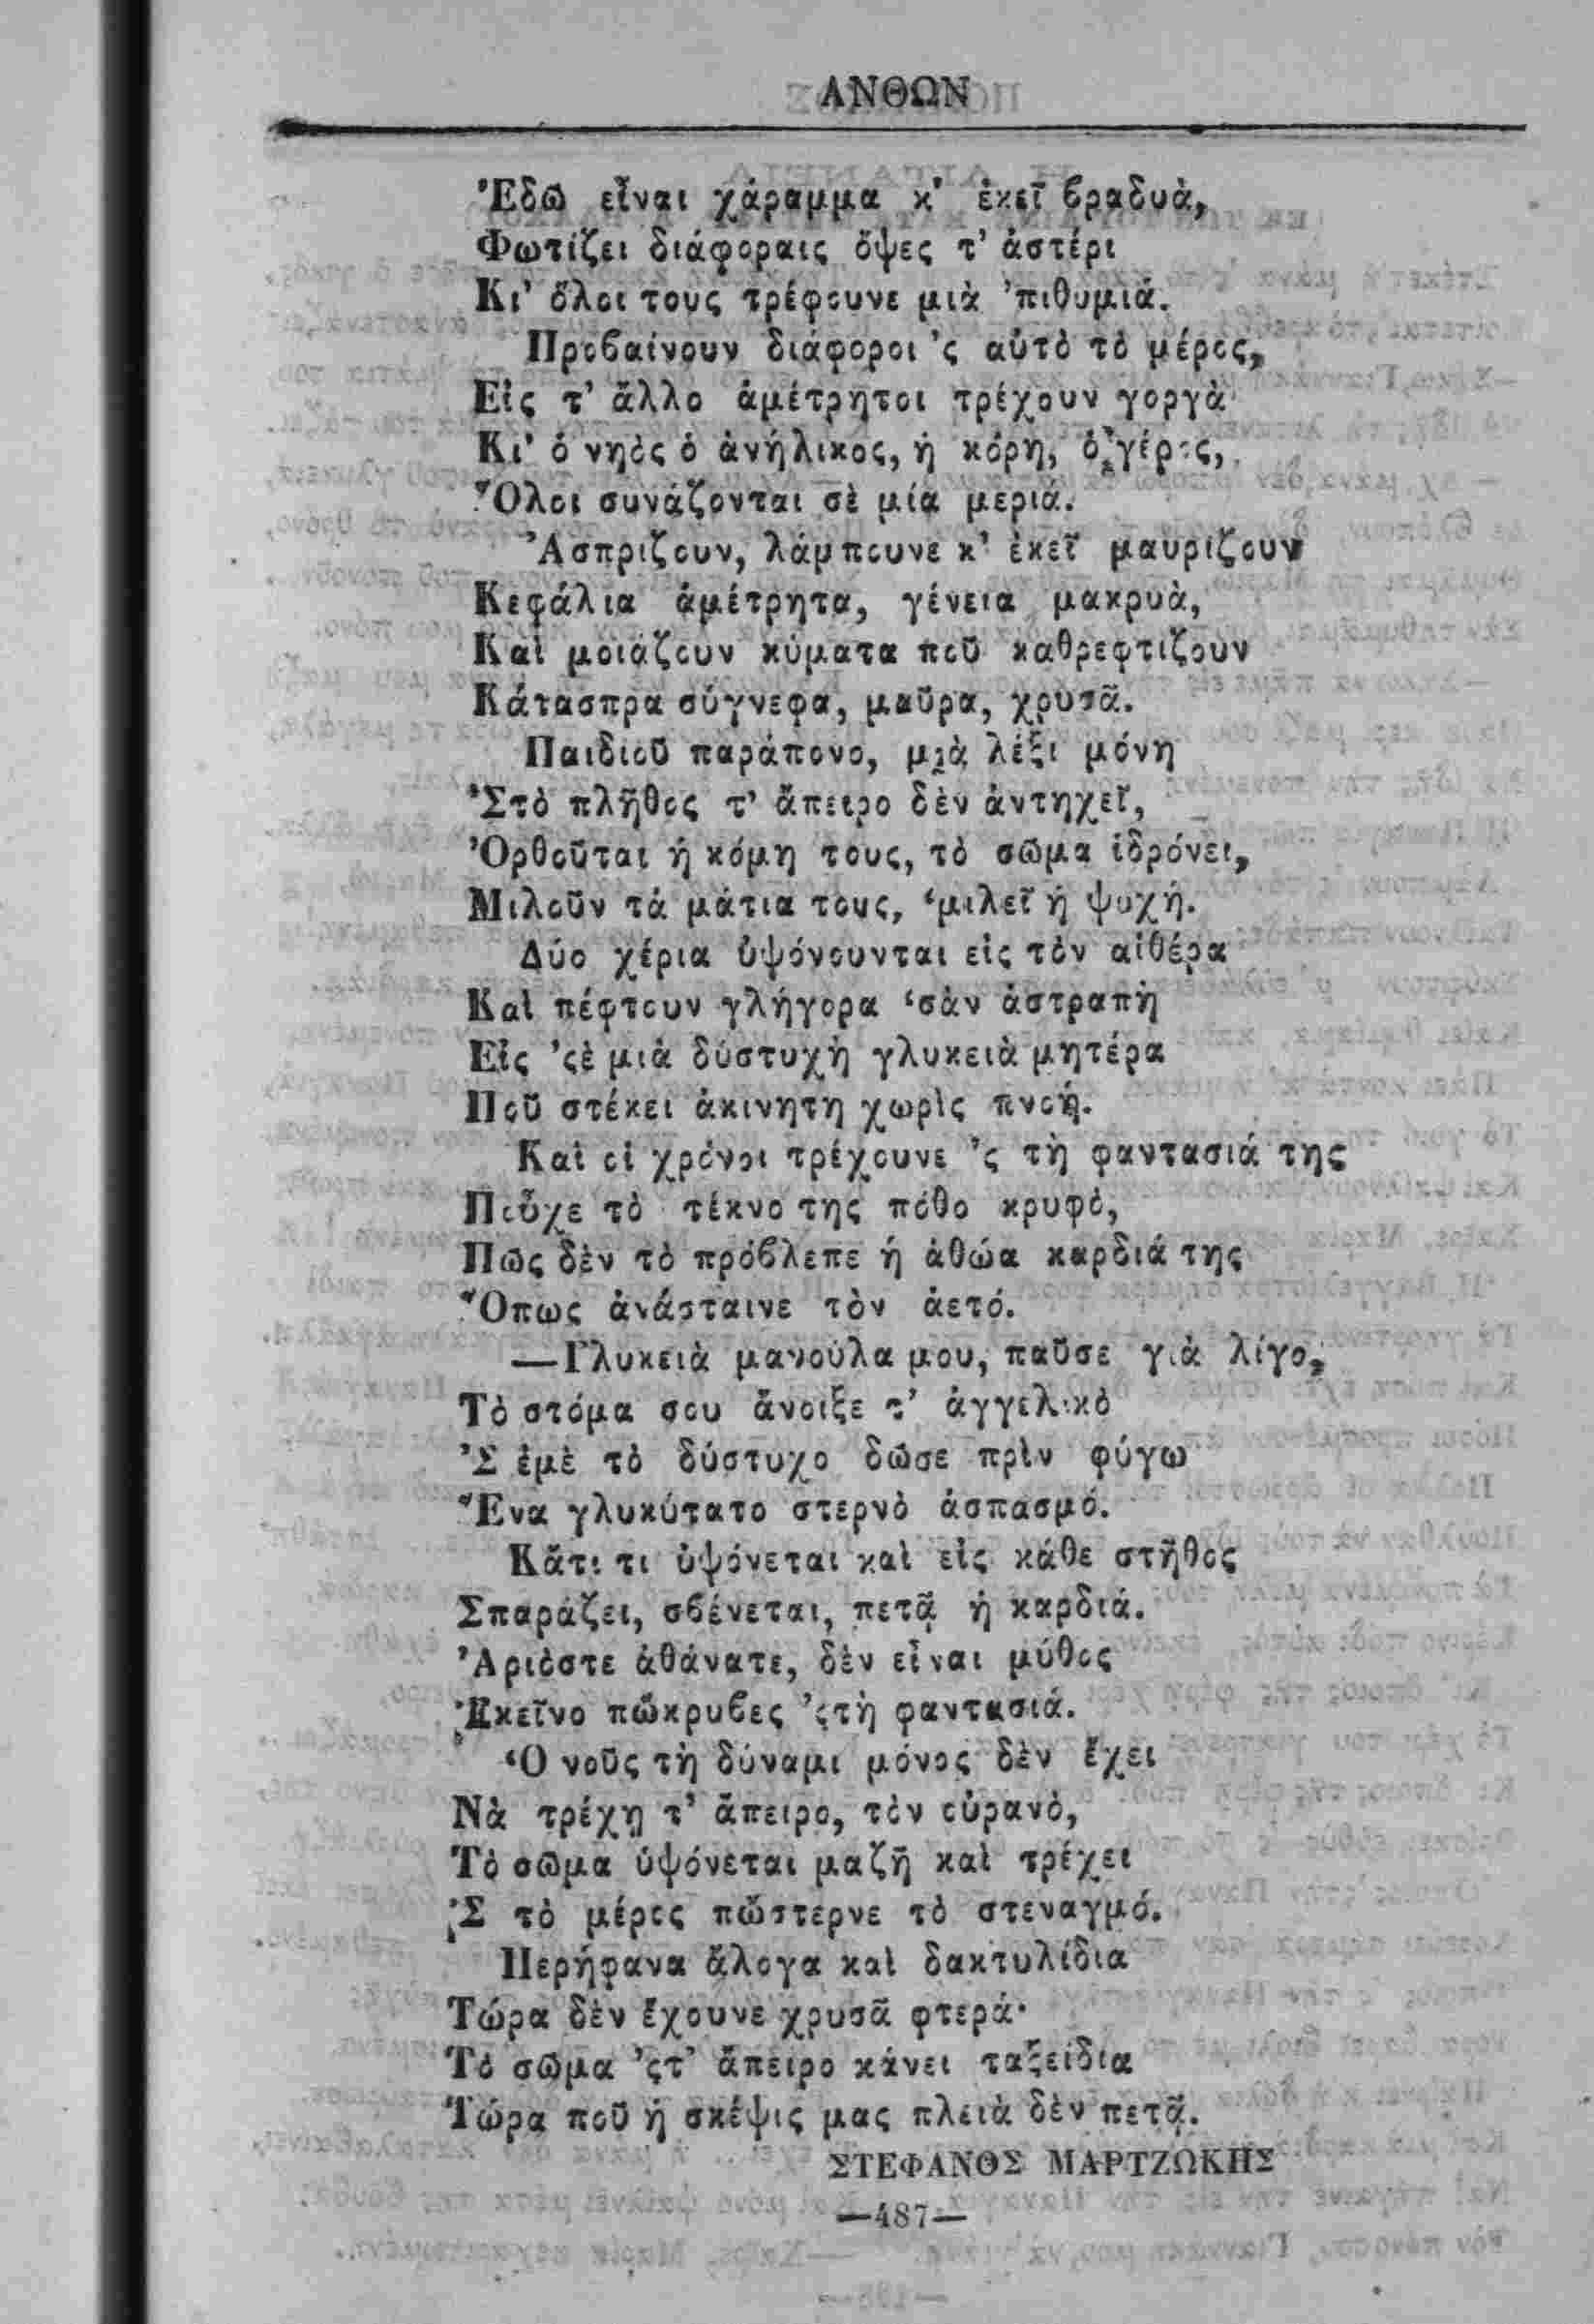 ΑΝΘΩΝ
Ἐδῶ εἶναι χάραμμα κ' ἐκεῖ βραδυὰ,
Φωτίζει διάφοραις ὄψες τ' ἀστέρι
Κι' ὅλοι τους τρέφουνε μιὰ 'πιθυμιά.
Προβαίνουν διάφοροι 'ς αὐτὸ τὸ μέρος,
Εἰς τ' ἄλλο ἀμέτρητοι τρέχουν γοργὰ
Κι' ὁ νηὸς ὁ ἀνήλικος, ἡ κόρη, ὁ γέρος,
Ὅλοι συνάζονται σὲ μία μεριά.
Ἀσπρίζουν, λάμπουνε κ' ἐκεῖ μαυρίζουν
Κεφάλια ἀμέτρητα, γένεια μακρυὰ,
Καὶ μοιάζουν κύματα ποῦ καθρεφτίζουν
Κάτασπρα σύγνεφα, μαῦρα, χρυσᾶ.
Παιδιοῦ παράπονο, μιὰ λέξι μόνη
Ἐτὸ πλῆθος τ' ἄπειρο δὲν ἀντηχεῖ,
Ὀρθοῦται ἡ κόμη τους, τὸ σῶμα ἱδρόνει,
Μιλοῦν τά μάτια τους, 'μιλεῖ ἡ ψυχή.
Δύο χέρια ὑψόνουνται εἰς τὸν αἰθέρα
Καὶ πέφτουν γλήγορα 'σὰν ἀστραπὴ
Εἰς 'ςὲ μιὰ δύστυχὴ γλυκειὰ μητέρα
Ποῦ στέκει ἀκινητη χωρὶς πνοή.
Καὶ οἱ χρόνοι τρέχουνε 'ς τὴ φαντασιά της
Ποῦχε τὸ τέκνο της πόθο κρυφὸ,
Πῶς δὲν τὸ πρόβλεπε ἡ ἀθώα καρδιά της
Ὅπως ἀνάσταινε τὸν ἀετό.
—Γλυκειὰ μανούλα μου, παῦσε γιὰ λίγο,
Τὸ στόμα σου ἄνοιξε τ' ἀγγελικὸ
Ἐ ἐμὲ τὸ δύστυχο δῶσε πρὶν φύγω
Ἕνα γλυκύτατο στερνὸ ἀσπασμό.
Κἄτι τι ὑψόνεται καὶ εἰς κάθε στῆθος
Σπαράζει, σβένεται, πετᾷ ἡ καρδιά.
Ἀριόστε ἀθάνατε, δὲν εἶναι μύθος
Ἐκεῖνο πὤκρυβες 'ςτὴ φαντασιά.
Ὁ νοῦς τὴ δύναμι μόνος δὲν ἔχει
Νὰ τρέχῃ τ' ἄπειρο, τὸν οὐρανὸ,
Τὸ σῶμα ὑψόνεται μαζῆ καὶ τρέχει
'Σ τὸ μέρος πὤστερνε τὸ στεναγμό.
Περήφανα ἄλογα καὶ δακτυλίδια
Τώρα δὲν ἔχουνε χρυσᾶ φτερά·
Τὸ σῶμα 'ςτ' ἄπειρο κάνει ταξείδια
Τώρα ποῦ ἡ σκέψις μας πλειὰ δὲν πετᾷ.
ΣΤΕΦΑΝΟΣ ΜΑΡΤΖΩΚΗΣ
—487—